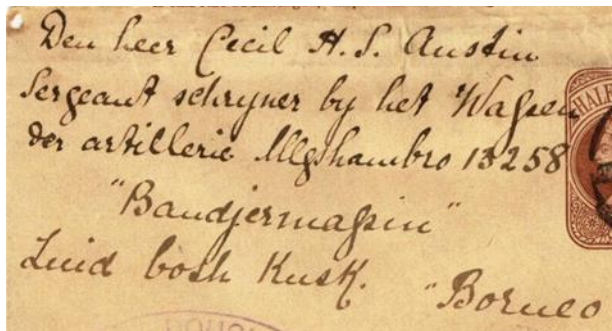 Den heer Cecil H. S. Austin
Sergeant schryner by het Wapen
der artillerie Algshambro 13258
HALF
"Bandjermasin"
Zuid oost Kust. "Borneo